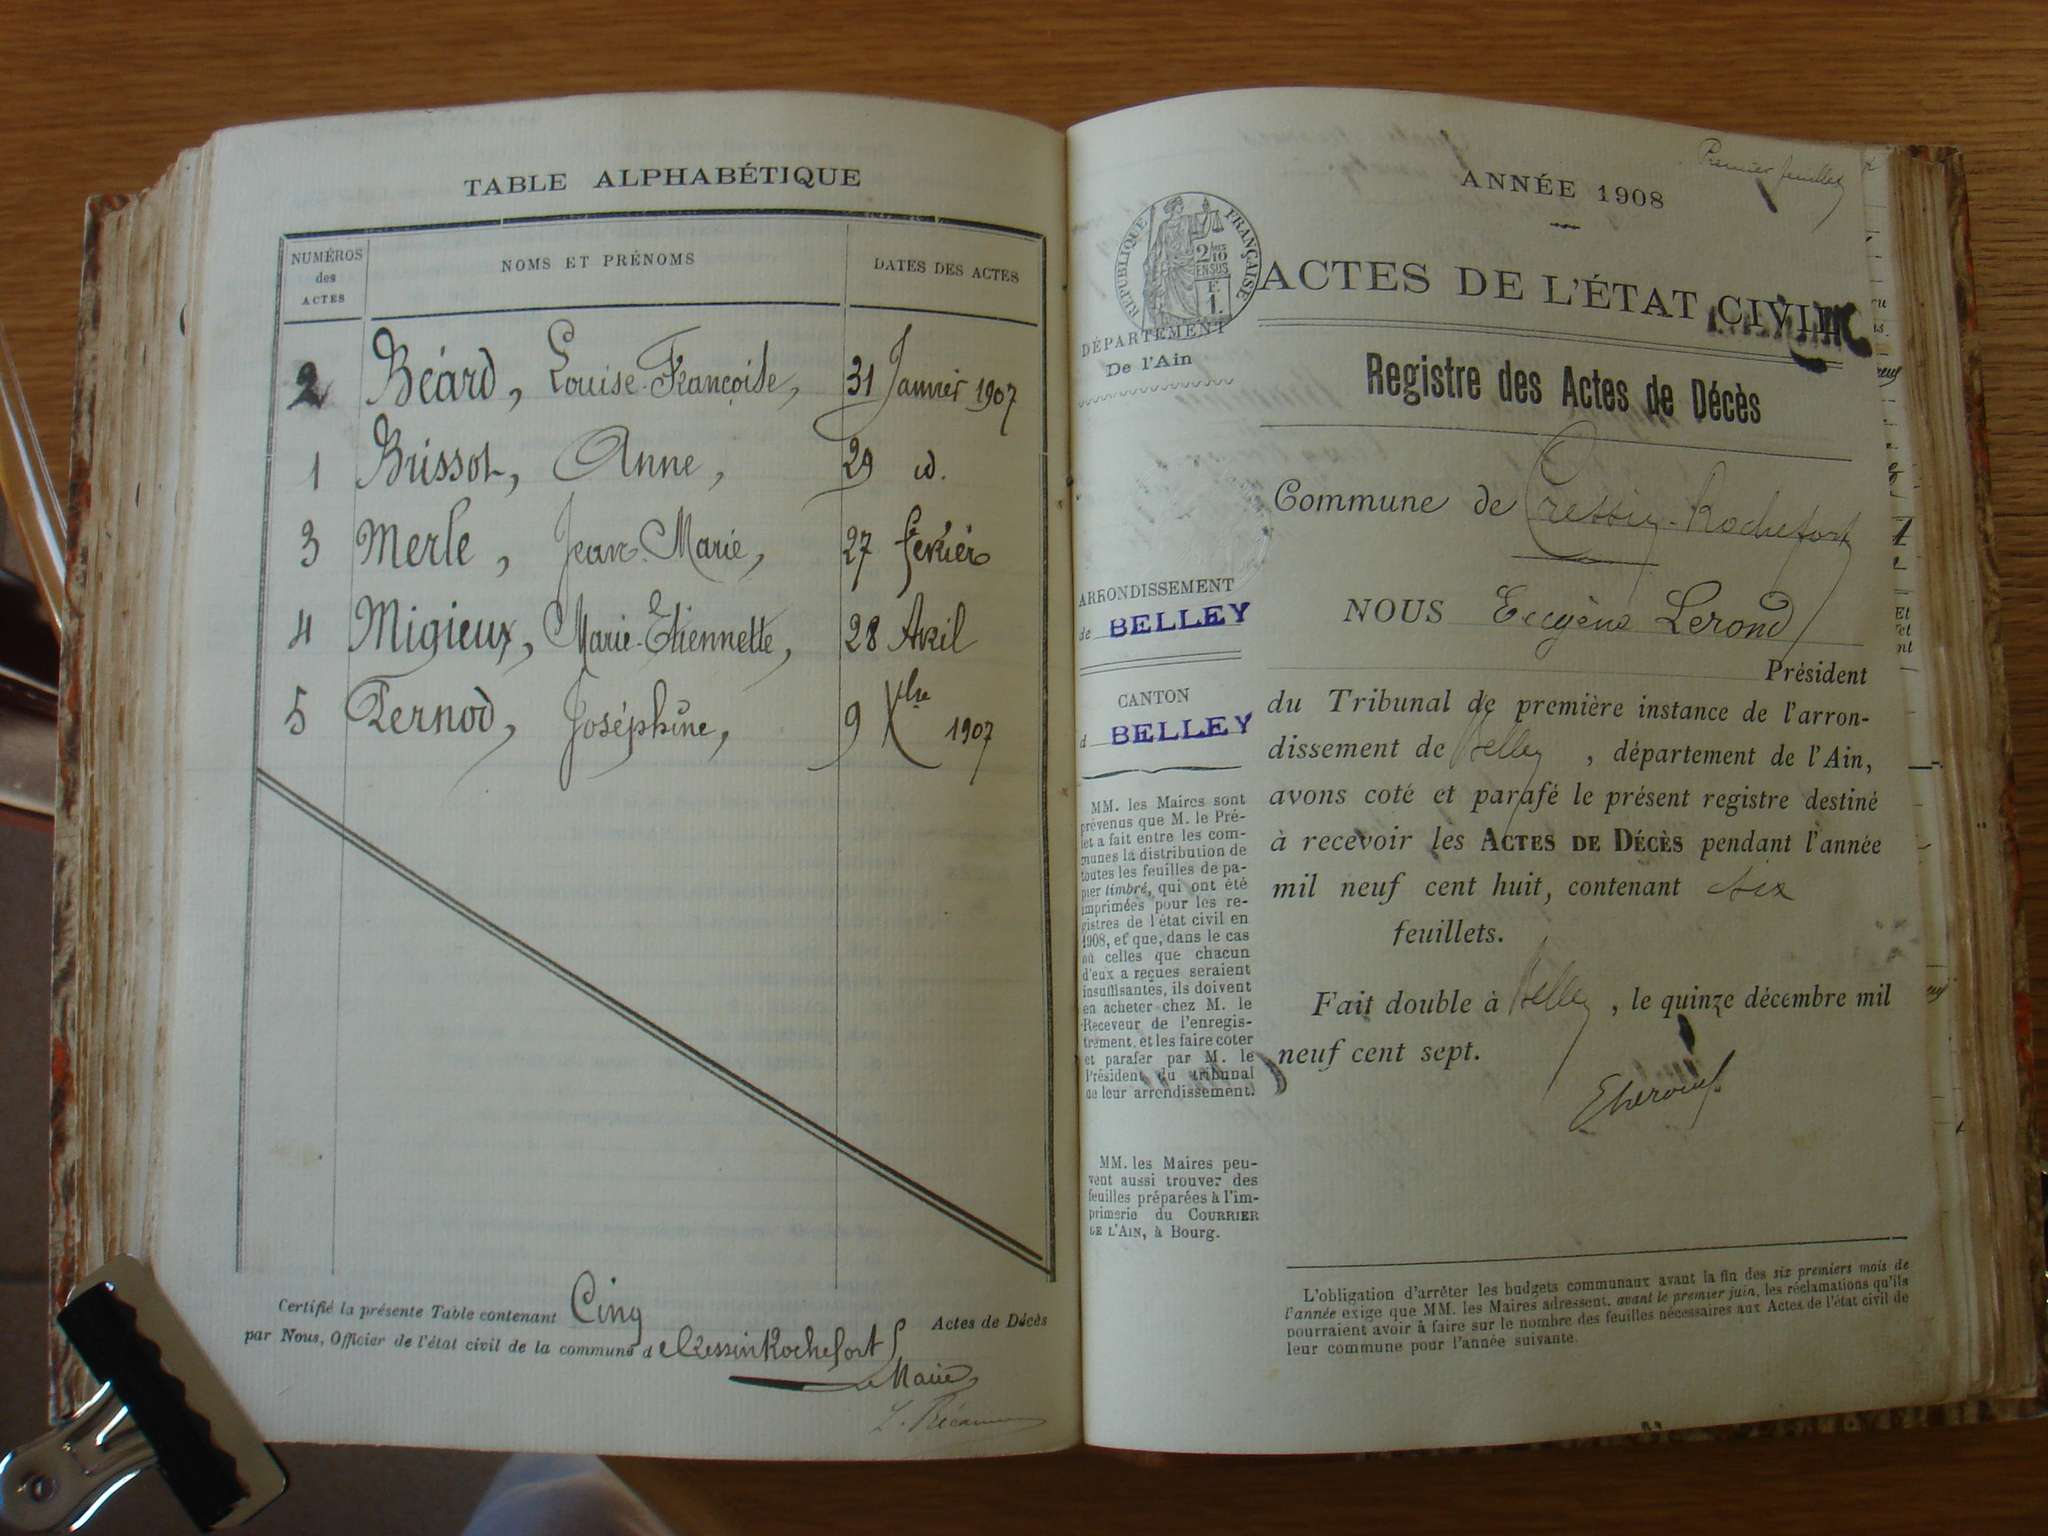 TABLE ALPHABÉTIQUE
NUMÉROS des ACTES
NOMS ET PRÉNOMS
DATES DES ACTES
2 Béard, Louise-Françoise, 31 Janvier 1907
1 Brissot, Anne, 29 id.
3 Merle, Jean-Marie, 27 fevrier
4 Migieux, Marie-Etiennette, 28 Avril
5 Pernod, Joséphine, 9 Xbre 1907
Certifié la présente Table contenant Cinq Actes de Décès
par Nous, Officier de l'état civil de la commune d Cressin Rochefort
Le Maire
Premier feuillet
ANNÉE 1908
RÉPUBLIQUE FRANÇAISE
2 10
EN SUS
F.
1.
ACTES DE L'ÉTAT CIVIL
DÉPARTEMENT
De l'Ain
Registre des Actes de Décès
Commune de Cressin-Rochefort
ARRONDISSEMENT
de BELLEY
CANTON
d BELLEY
NOUS Eugène Lerond
Président
du Tribunal de première instance de l'arron-
dissement de Belley, département de l'Ain,
avons coté et parafé le présent registre destiné
à recevoir les ACTES DE DÉCÈS pendant l'année
mil neuf cent huit, contenant six
feuillets.
Fait double à Belley, le quinze décembre mil
neuf cent sept.
MM. les Maires sont
prévenus que M. le Pré-
fet a fait entre les com-
munes la distribution de
toutes les feuilles de pa-
pier timbré, qui ont été
imprimées pour les re-
gistres de l'état civil en
1908, et que, dans le cas
où celles que chacun
d'eux a reçues seraient
insuffisantes, ils doivent
en acheter chez M. le
Receveur de l'enregis-
trement, et les faire coter
et parafer par M. le
Président du tribunal
de leur arrondissement.
MM. les Maires peu-
vent aussi trouver des
feuilles préparées à l'im-
primerie du COURRIER
DE L'AIN, à Bourg.
L'obligation d'arrêter les budgets communaux avant la fin des six premiers mois de
l'année exige que MM. les Maires adressent, avant le premier juin, les réclamations qu'ils
pourraient avoir à faire sur le nombre des feuilles nécessaires aux Actes de l'état civil de
leur commune pour l'année suivante.